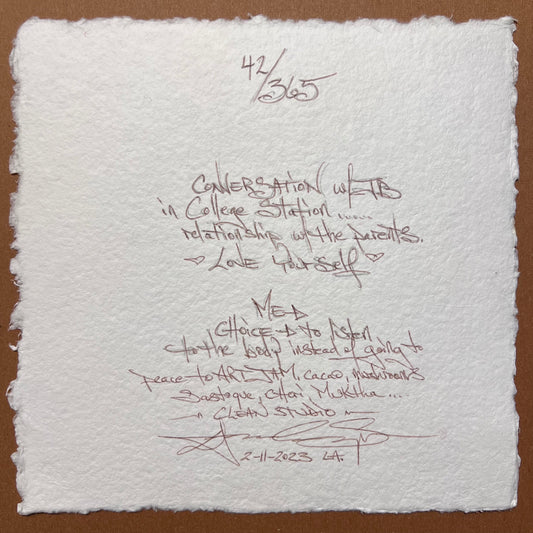 42/365
CONVERSATION W/ TB
in College Station......
relationship w/ the parents.
Love Yourself
MED
CHOICE-D to listen
to the body instead of going to
peace to ART JAM, cacao, mushrooms
Chai, Muktha....
CLEAN STUDIO
2-11-2023 LA.